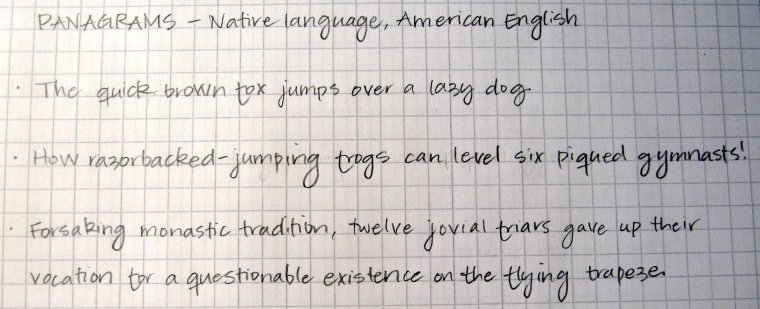 PANAGRAMS - Native language, American English
· The quick brown fox jumps over a lazy dog.
· How razorbacked-jumping frogs can level six piqued gymnasts!
· Forsaking monastic tradition, twelve jovial friars gave up their
vocation for a questionable existence on the flying trapeze.